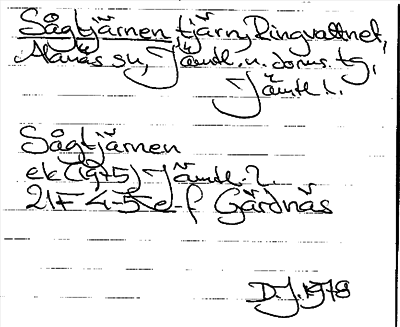 Sågtjärnen, tjärn, Ringvattnet,
Alanäs sn, Jämtl. n. doms. tg,
Jämtl l.
Sågtjärnen
ek (1975) Jämtl. l.
21F 4-5 e-f Gärdnäs
D.J. 1978